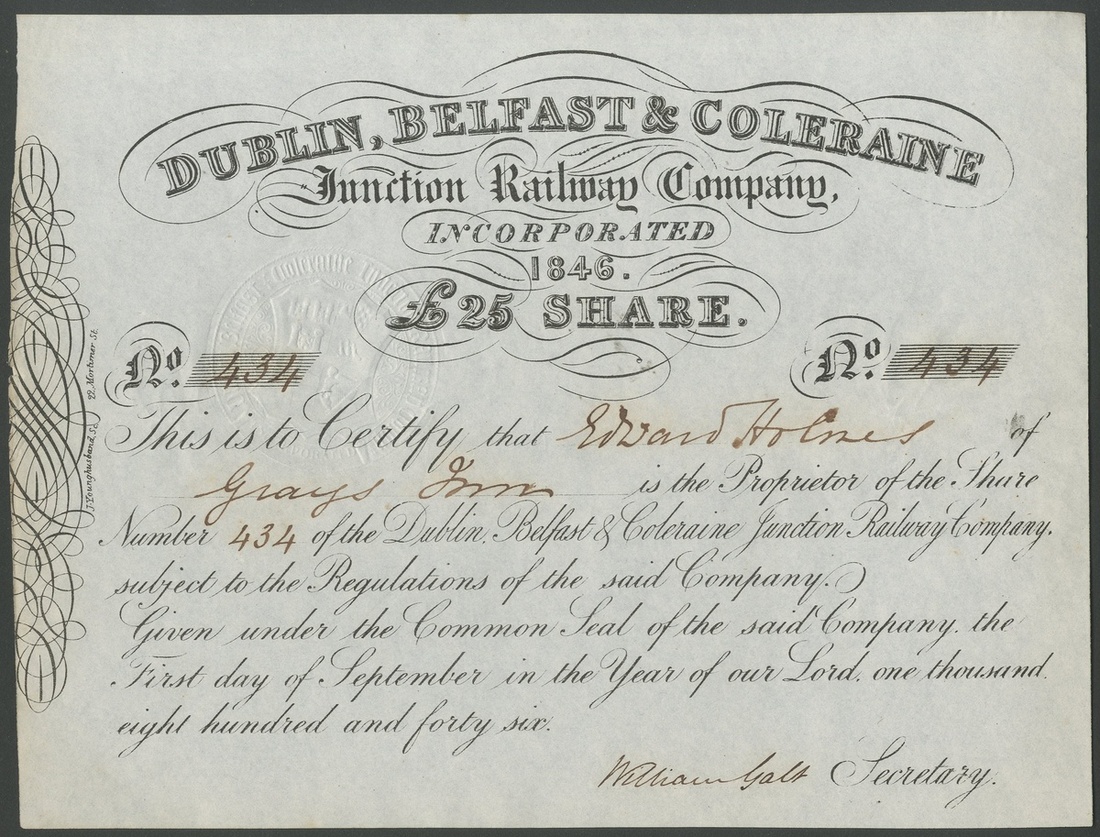 DUBLIN, BELFAST & COLERAINE
Junction Railway Company,
INCORPORATED
1846.
£25 SHARE.
No. 434
No. 434
This is to Certify that Edward Holmes of
Grays Inn is the Proprietor of the Share
Number 434 of the Dublin, Belfast & Coleraine Junction Railway Company.
subject to the Regulations of the said Company.
Given under the Common Seal of the said Company, the
First day of September in the Year of our Lord, one thousand
eight hundred and forty six.
William Galt Secretary.
J. Younghusband, Sc. 22, Mortimer St.
Coleraine